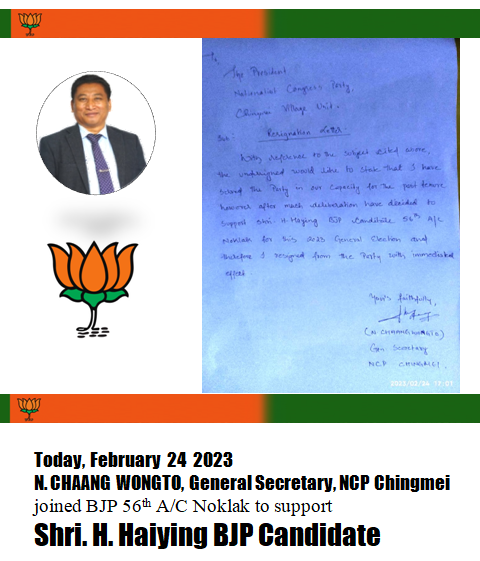 To,
The President
Nationalist Congress Party,
Chingmei Village Unit.
Sub:- Resignation Letter.
With reference to the subject cited above,
the undersigned would like to state that I have
served the Party in our capacity for the past tenure
however after much deliberation have decided to
support Shri. H. Haying BJP Candidate 56th A/C
Noklak for this 2023 General Election and
therefore I resigned from the Party with immediated
effect.
Your's faithfully,
(N CHAANG WONGTO)
Gen Secretary
NCP CHINGMEI.
2023/02/24 17:01
Today, February 24 2023
N. CHAANG WONGTO, General Secretary, NCP Chingmei
joined BJP 56th A/C Noklak to support
Shri. H. Haiying BJP Candidate